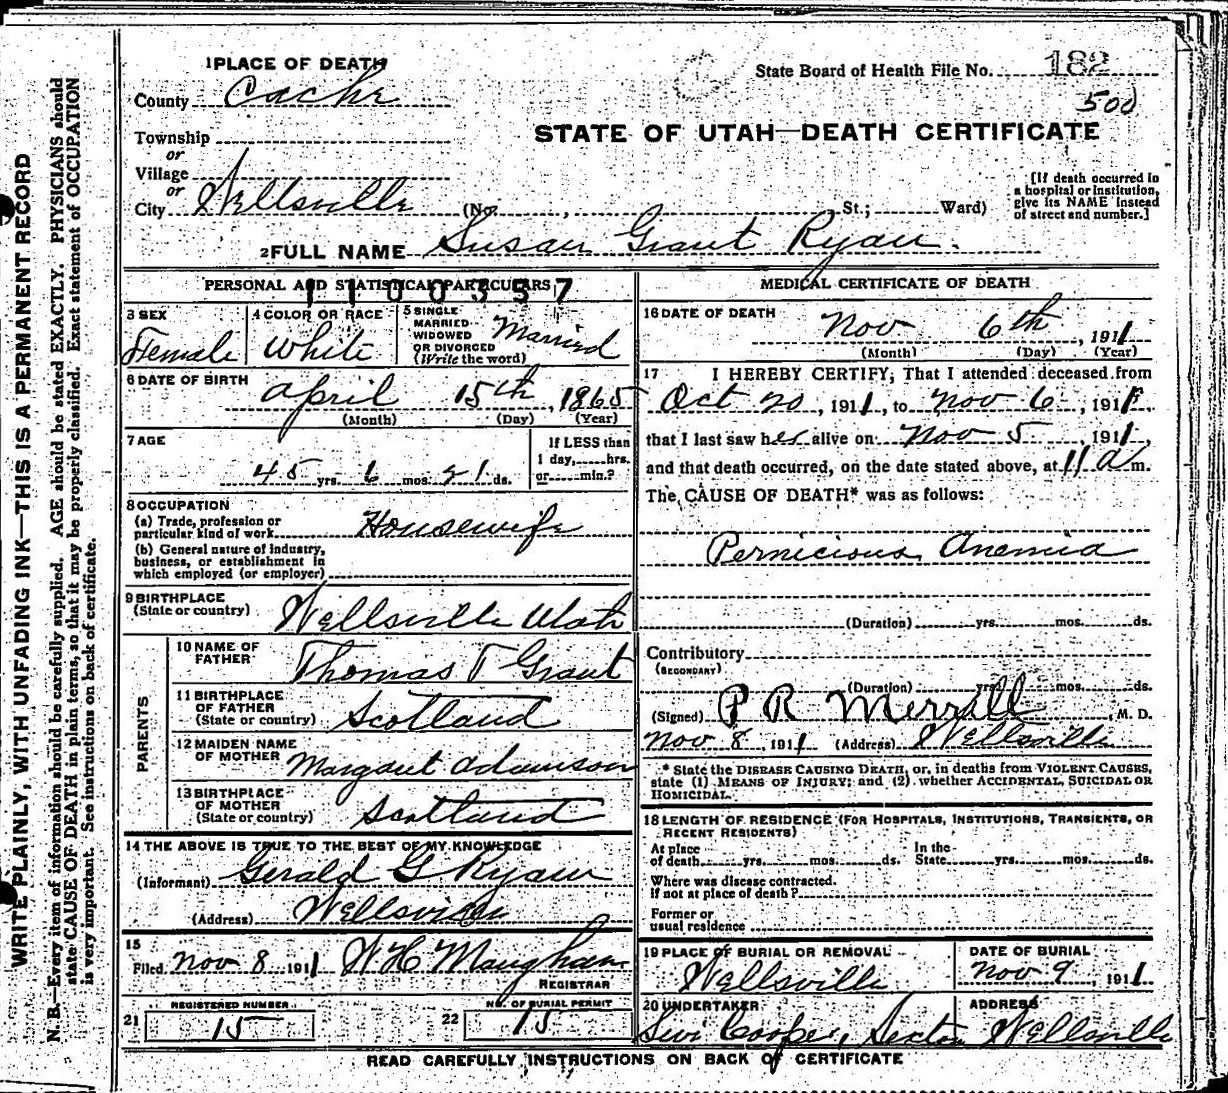 1 PLACE OF DEATH
County Cache
Township
or
Village
or
City Wellsville (No. , St.; Ward)
State Board of Health File No. 182
500
STATE OF UTAH—DEATH CERTIFICATE
[If death occurred in
a hospital or institution,
give its NAME instead
of street and number.]
2 FULL NAME Susan Grant Ryan.
PERSONAL AND STATISTICAL PARTICULARS
1100357
3 SEX
Female
4 COLOR OR RACE
White
5 SINGLE
MARRIED
WIDOWED
OR DIVORCED
(Write the word)
Married
6 DATE OF BIRTH
April 15th, 1865
(Month) (Day) (Year)
7 AGE
45 yrs. 6 mos. 21 ds.
If LESS than
1 day, hrs.
or min.?
8 OCCUPATION
(a) Trade, profession or
particular kind of work Housewife
(b) General nature of industry,
business, or establishment in
which employed (or employer)
9 BIRTHPLACE
(State or country) Wellsville Utah
PARENTS
10 NAME OF
FATHER Thomas T Grant
11 BIRTHPLACE
OF FATHER
(State or country) Scotland
12 MAIDEN NAME
OF MOTHER Margaut Adamson
13 BIRTHPLACE
OF MOTHER
(State or country) Scotland
14 THE ABOVE IS TRUE TO THE BEST OF MY KNOWLEDGE
(Informant) Gerald G Ryan
(Address) Wellsville
15
Filed Nov 8 1911 W H Maughan
REGISTRAR
REGISTERED NUMBER
21 15
NO. OF BURIAL PERMIT
22 15
MEDICAL CERTIFICATE OF DEATH
16 DATE OF DEATH
Nov 6th, 1911
(Month) (Day) (Year)
17 I HEREBY CERTIFY, That I attended deceased from
Oct 20, 1911, to Nov 6, 1911,
that I last saw her alive on Nov 5, 1911,
and that death occurred, on the date stated above, at 11 a m.
The CAUSE OF DEATH* was as follows:
Pernicious Anemia
(Duration) yrs. mos. ds.
Contributory
(SECONDARY)
(Duration) yrs. mos. ds.
(Signed) P R Merrill, M. D.
Nov 8, 1911 (Address) Wellsville
* State the DISEASE CAUSING DEATH, or, in deaths from VIOLENT CAUSES,
state (1) MEANS OF INJURY; and (2) whether ACCIDENTAL, SUICIDAL OR
HOMICIDAL.
18 LENGTH OF RESIDENCE (FOR HOSPITALS, INSTITUTIONS, TRANSIENTS, OR
RECENT RESIDENTS)
At place
of death yrs. mos. ds.
In the
State yrs. mos. ds.
Where was disease contracted.
If not at place of death?
Former or
usual residence
19 PLACE OF BURIAL OR REMOVAL
Wellsville
DATE OF BURIAL
Nov 9, 1911
20 UNDERTAKER
Levi Cooper, Sexton
ADDRESS
Wellsville
READ CAREFULLY INSTRUCTIONS ON BACK OF CERTIFICATE
WRITE PLAINLY, WITH UNFADING INK—THIS IS A PERMANENT RECORD
N. B.—Every item of information should be carefully supplied. AGE should be stated EXACTLY. PHYSICIANS should
state CAUSE OF DEATH in plain terms, so that it may be properly classified. Exact statement of OCCUPATION
is very important. See instructions on back of certificate.